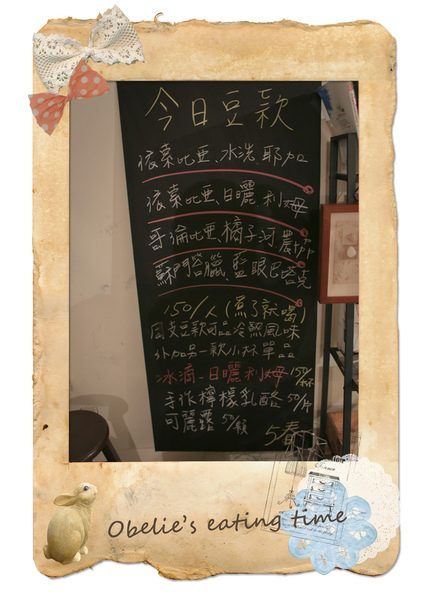 今日豆款
依索比亞、水洗、耶加
依索比亞、日曬、利姆
哥倫比亞、橘子河、農加
蘇門答臘、藍眼巴塔克
150/人(煮了就喝)
同支豆款可品冷熱風味
外加另一款小杯單品
冰滴-日曬利姆 150/杯
手作檸檬乳酪 50/片
可麗露 50/顆
Obelie's eating time